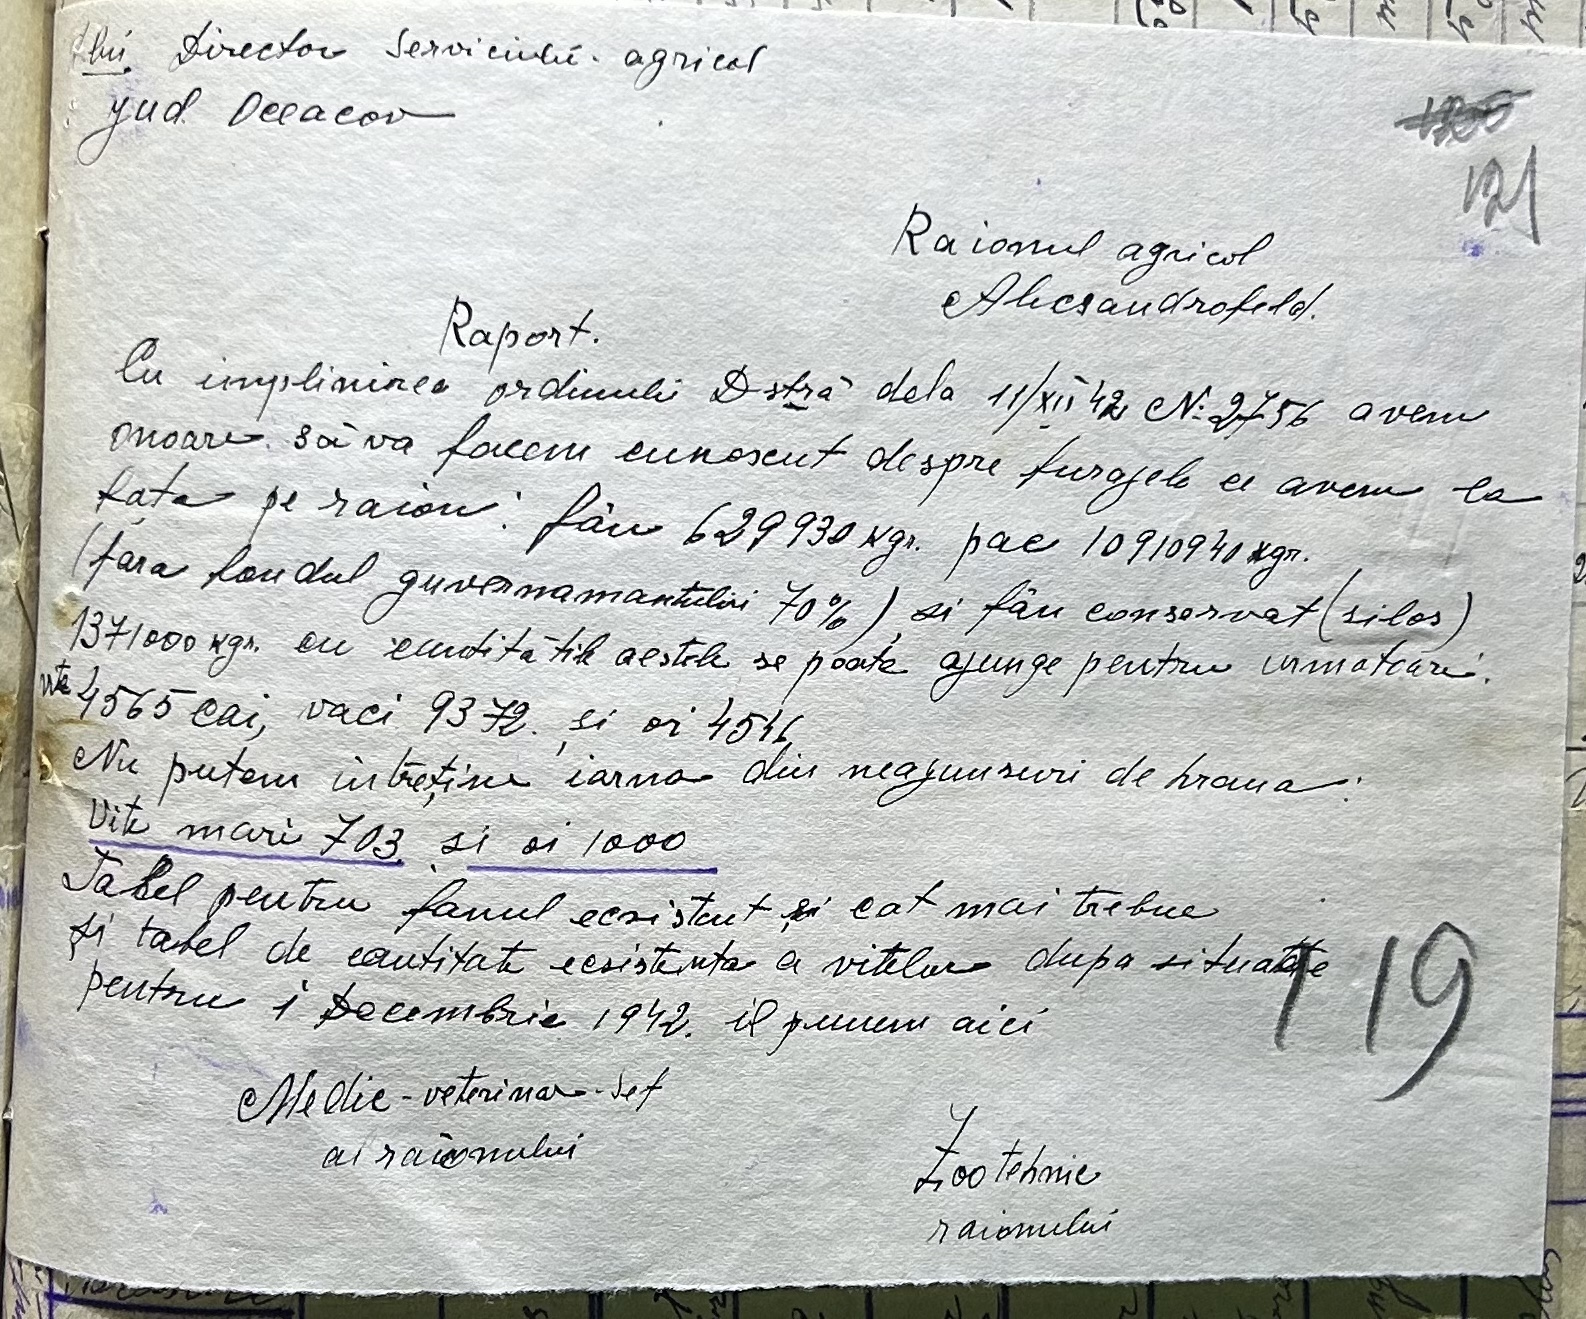 Dlui Director Serviciului agricol
jud. Oceacov
121
Raionul agricol
Alecsandrofeld.
Raport.
Cu implinirea ordinului D-stră dela 11/XII 42 № 2756 avem
onoare să va facem cunoscut despre furajele ce avem la
fața pe raion: fân 629930 kgr. pae 10910940 kgr.
(fara fondul guvernamantului 70%) și fân conservat (silos)
1371000 kgr. cu cantitățile acestele se poate ajunge pentru urmatoare:
vite 4565 cai, vaci 9372 și oi 4546
Nu putem intreține iarna din neajunsuri de hrana:
Vite mari 703 și oi 1000
Tabel pentru fanul ecsistent și cat mai trebue
și tabel de cantitate ecsistenta a vitelor dupa situatie
pentru 1 Decembrie 1942. il punem aici
119
Medic-veterinar-șef
al raionului
Zootehnic
raionului